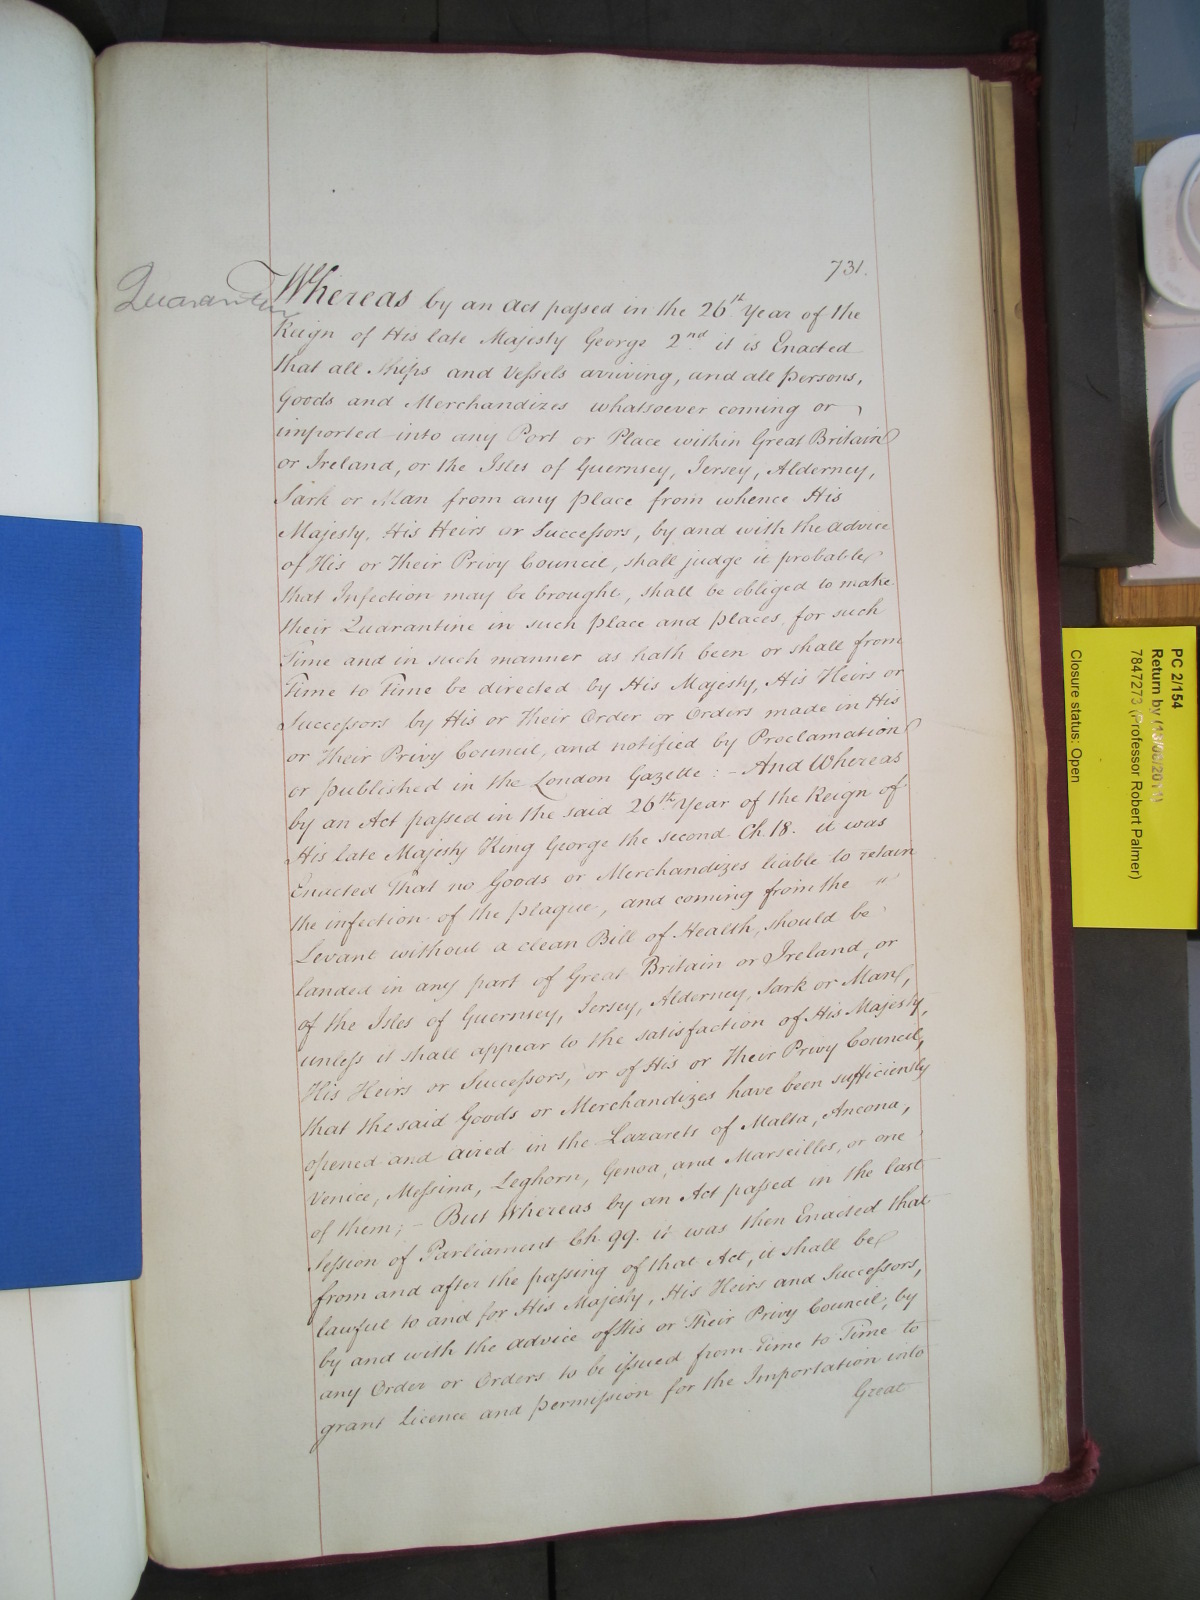 731.
Quarantine
Whereas by an Act passed in the 26th Year of the
Reign of His late Majesty George 2nd it is Enacted
that all Ships and Vessels arriving, and all persons,
Goods and Merchandizes whatsoever coming or
imported into any Port or Place within Great Britain
or Ireland, or the Isles of Guernsey, Jersey, Alderney,
Sark or Man from any place from whence His
Majesty, His Heirs or Successors, by and with the advice
of His or Their Privy Council, shall judge it probable
that Infection may be brought, shall be obliged to make
their Quarantine in such place and places, for such
Time and in such manner as hath been or shall from
Time to Time be directed by His Majesty, His Heirs or
Successors by His or Their Order or Orders made in His
or Their Privy Council, and notified by Proclamation
or published in the London Gazette : - And Whereas
by an Act passed in the said 26th Year of the Reign of
His late Majesty King George the second Ch. 18. it was
Enacted That no Goods or Merchandizes liable to retain
the infection of the plague, and coming from the "
Levant without a clean Bill of Health, should be
landed in any part of Great Britain or Ireland, or
of the Isles of Guernsey, Jersey, Alderney, Sark or Man,
unless it shall appear to the satisfaction of His Majesty,
His Heirs or Successors, or of His or Their Privy Council,
that the said Goods or Merchandizes have been sufficiently
opened and aired in the Lazarets of Malta, Ancona,
Venice, Messina, Leghorn, Genoa, and Marseilles, or one
of them; - But Whereas by an Act passed in the last
Session of Parliament Ch. 99. it was then Enacted that
from and after the passing of that Act, it shall be
lawful to and for His Majesty, His Heirs and Successors,
by and with the advice of His or Their Privy Council, by
any Order or Orders to be issued from Time to Time to
grant Licence and permission for the Importation into
Great
PC 2/154
Return by (13/06/2011)
7847273 (Professor Robert Palmer)
Closure status: Open